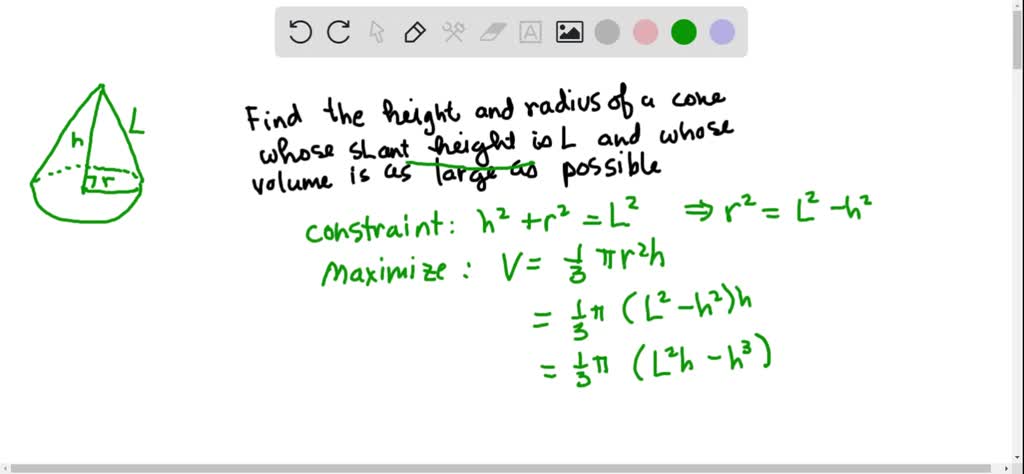 A
h
L
r
Find the height and radius of a cone
whose slant height is L and whose
volume is as large as possible
constraint: h² + r² = L² ⇒ r² = L² - h²
Maximize: V = 1/3 πr²h
= 1/3 π (L² - h²)h
= 1/3 π (L²h - h³)